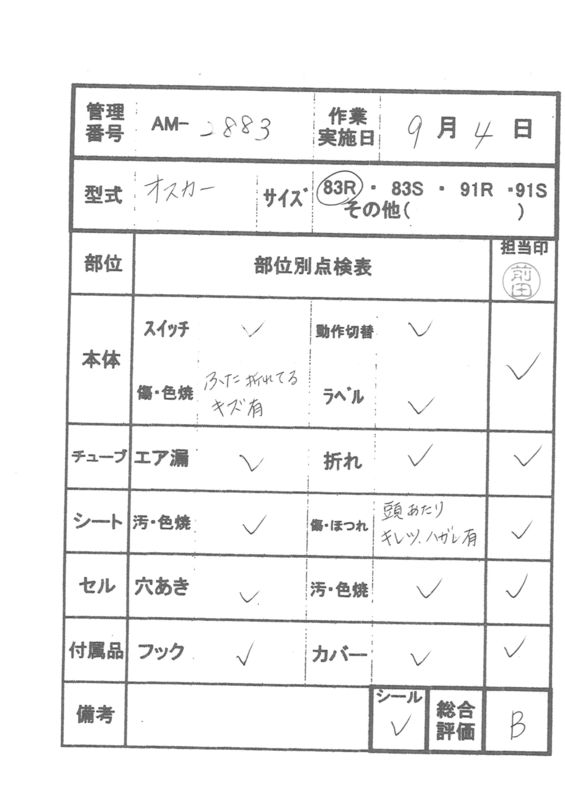 管理番号 AM-2883 作業実施日 9月4日
型式 オスカー サイズ 83R・83S・91R・91S
その他( )
部位 部位別点検表 担当印 前田
本体 スイッチ ✓ 動作切替 ✓ ✓
傷・色焼 ふた折れてる キズ有 ラベル ✓
チューブ エア漏 ✓ 折れ ✓ ✓
シート 汚・色焼 ✓ 傷・ほつれ 頭あたり キレツ、ハガレ有 ✓
セル 穴あき ✓ 汚・色焼 ✓ ✓
付属品 フック ✓ カバー ✓ ✓
備考 シール ✓ 総合評価 B